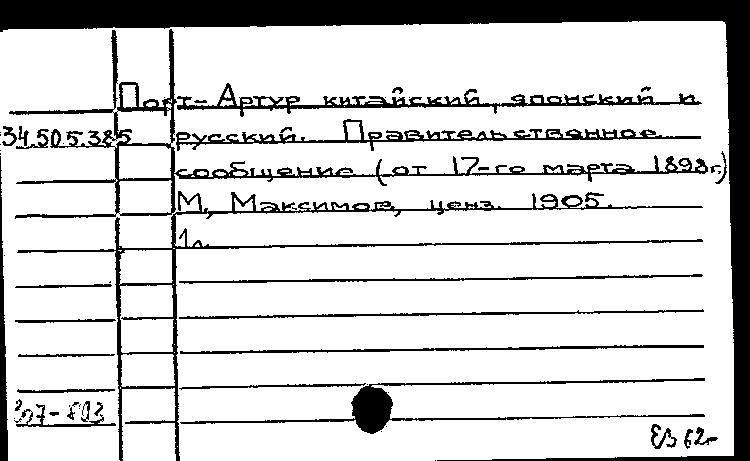 Порт-Артур китайский, японский и
34.505.385 русский. Правительственное
сообщение (от 17-го марта 1898г.)
М., Максимов, ценз. 1905.
1л.
307-803